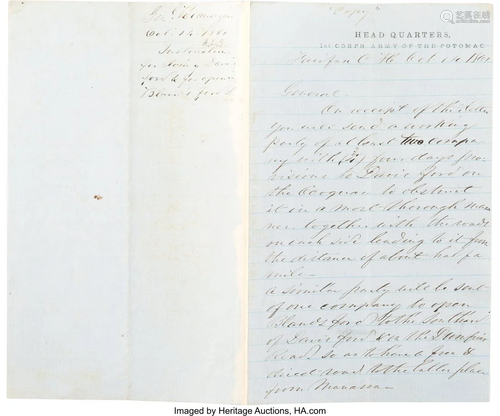 Oct. 14 1861
Instructions
"Copy"
HEAD QUARTERS,
1st CORPS ARMY OF THE POTOMAC
Fairfax C. H. Oct 14. 1861
General.
On receipt of this letter
you will send a working
party of at least two compa
ny with (4) four days pro-
visions to Davis' ford on
the Occoquan to obstruct
it in a most thorough man
ner together with the roads
on each side leading to it for
the distance of about half a
mile—
a similar party will be sent
of one company to open
Bland's ford to the South
of Davis' ford & on the Dumfries
Road, so as to have a free &
direct road to the latter place
from Manassas—
Imaged by Heritage Auctions, HA.com